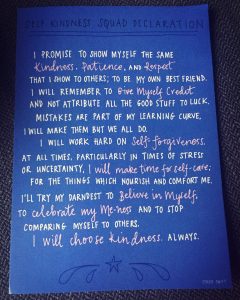 SELF KINDNESS SQUAD DECLARATION
I PROMISE TO SHOW MYSELF THE SAME
Kindness, Patience, AND Respect
THAT I SHOW TO OTHERS; TO BE MY OWN BEST FRIEND.
I WILL REMEMBER TO Give Myself Credit
AND NOT ATTRIBUTE ALL THE GOOD STUFF TO LUCK.
MISTAKES ARE PART OF MY LEARNING CURVE,
I WILL MAKE THEM BUT WE ALL DO.
I WILL WORK HARD ON Self-forgiveness.
AT ALL TIMES, PARTICULARLY IN TIMES OF STRESS
OR UNCERTAINTY, I will make time for self-care;
FOR THE THINGS WHICH NOURISH AND COMFORT ME.
I'LL TRY MY DARNDEST TO Believe in Myself,
TO celebrate my Me-ness AND TO STOP
COMPARING MYSELF TO OTHERS.
I will choose kindness. ALWAYS.